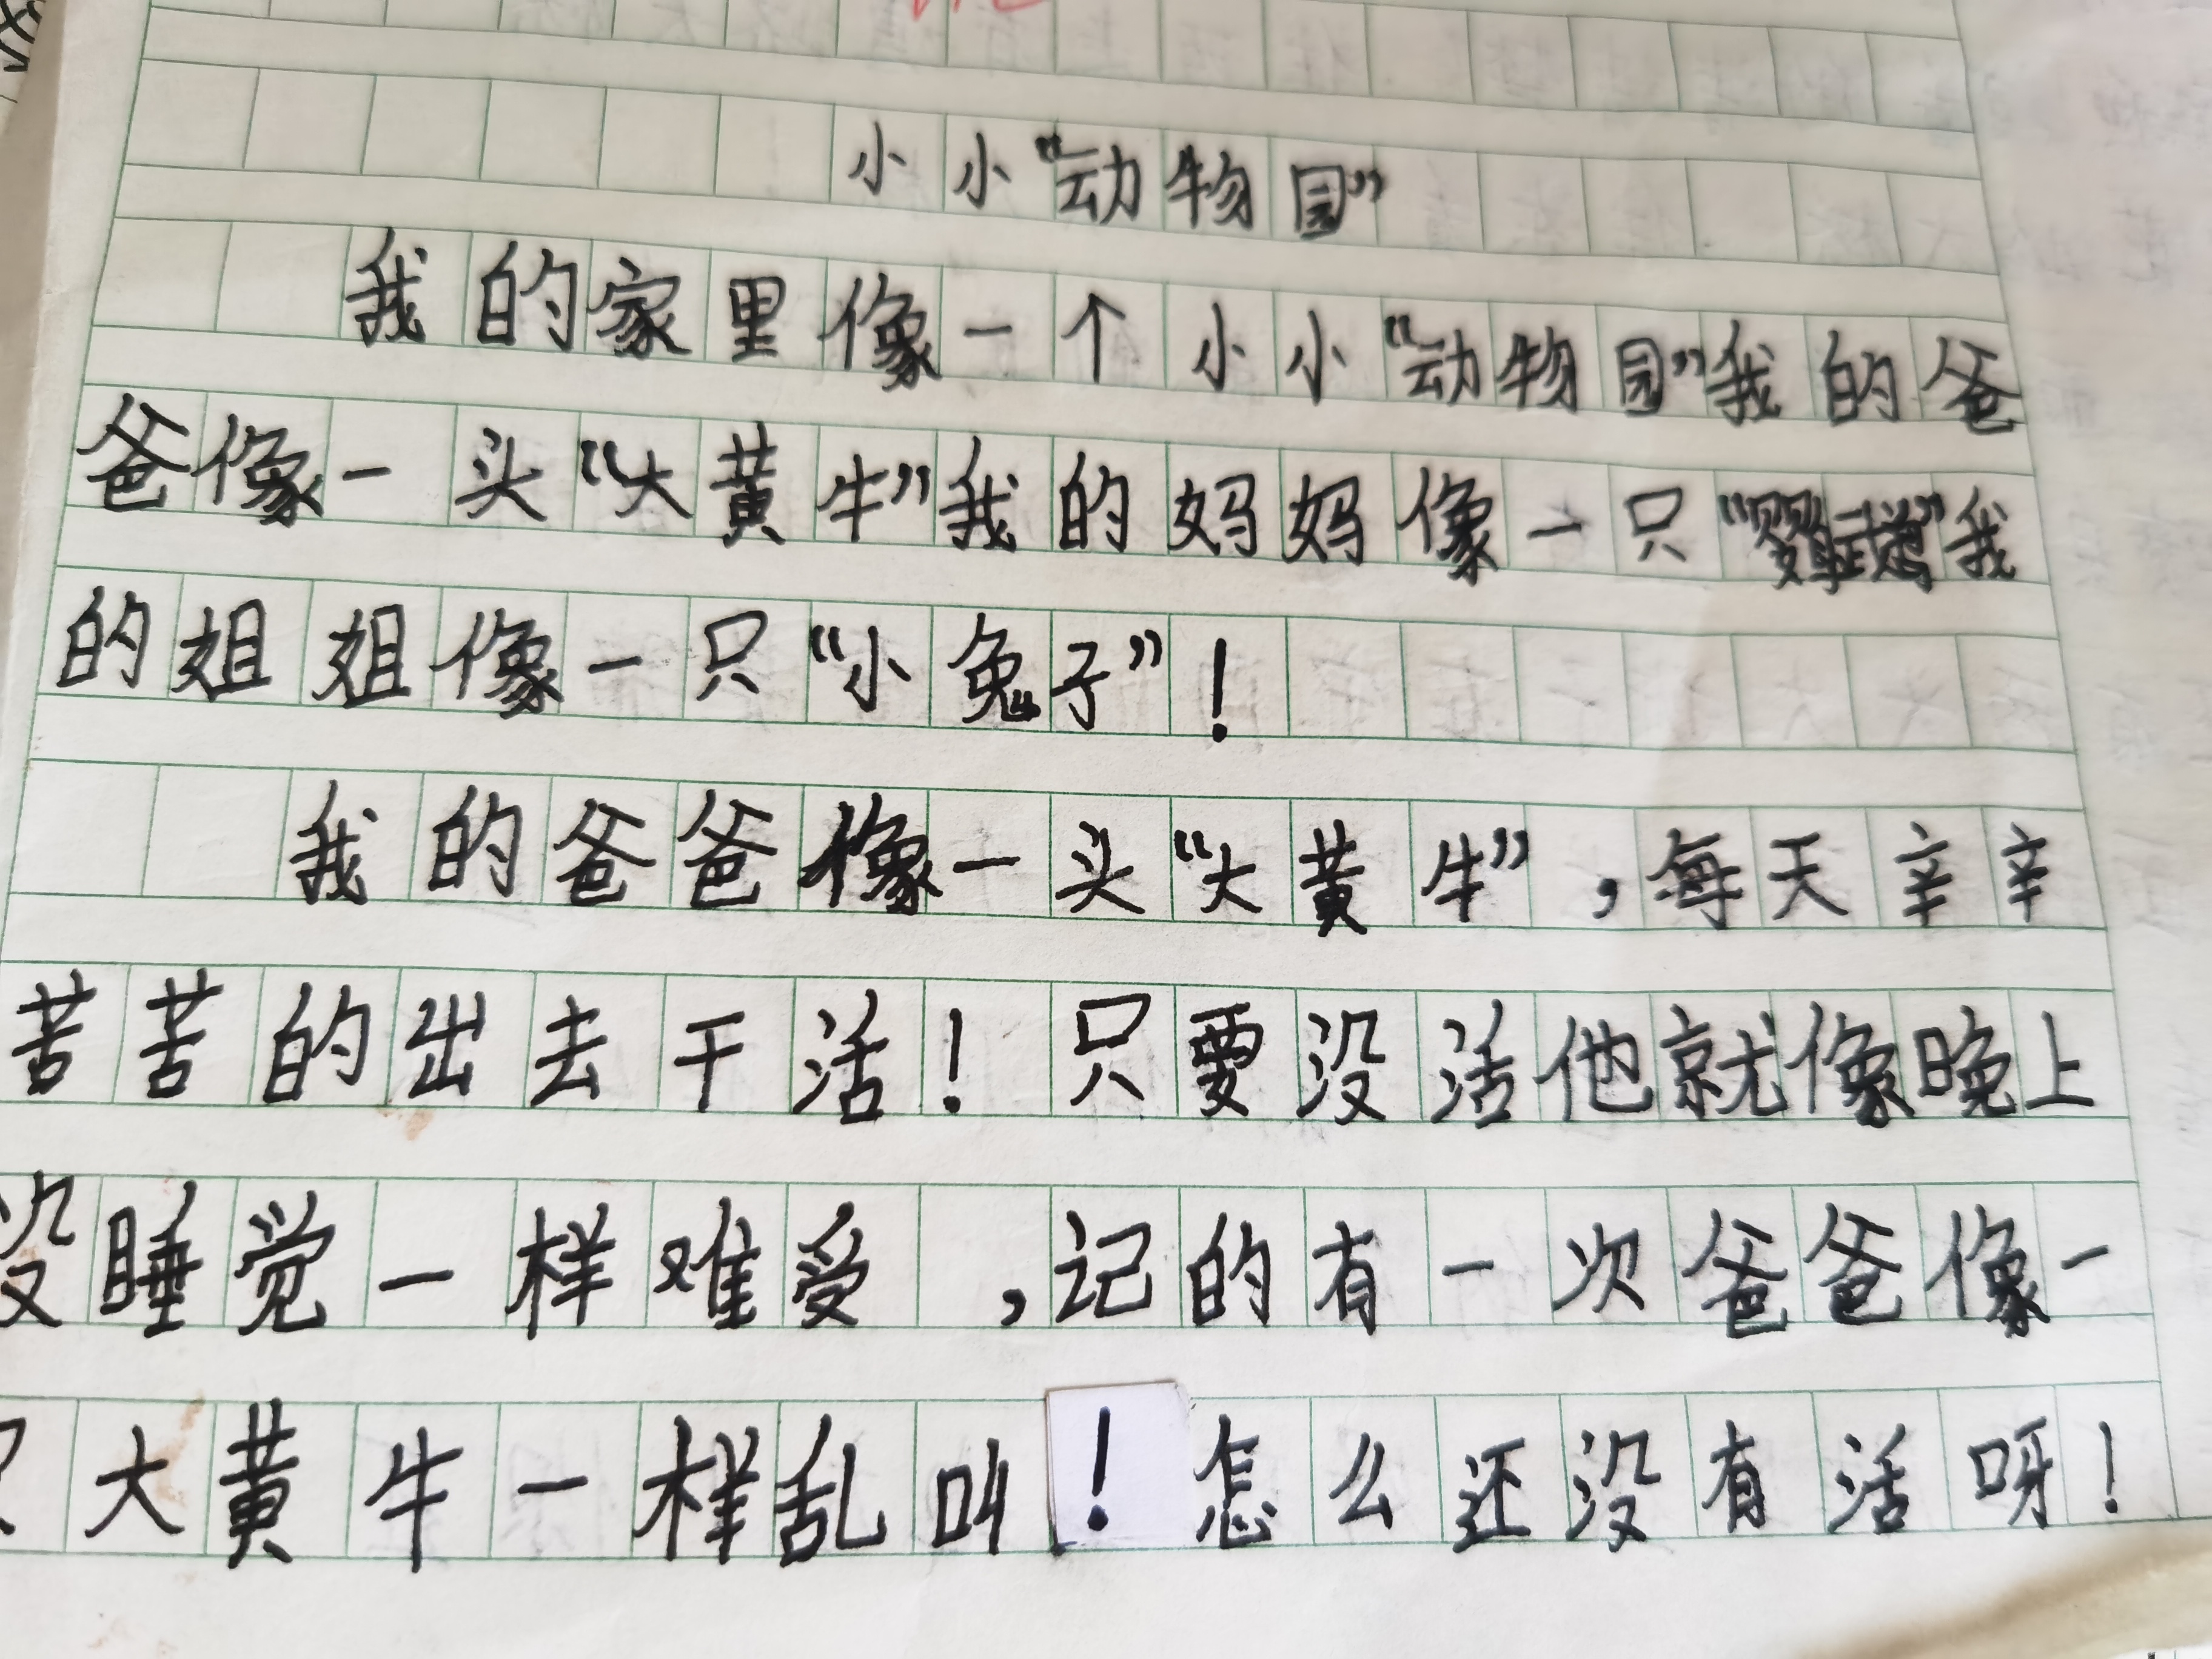 小小“动物园”
我的家里像一个小小“动物园”我的爸
爸像一头“大黄牛”我的妈妈像一只“鹦鹉”我
的姐姐像一只“小兔子”!
我的爸爸像一头“大黄牛”,每天辛辛
苦苦的出去干活!只要没活他就像晚上
没睡觉一样难受,记的有一次爸爸像一
只大黄牛一样乱叫!怎么还没有活呀!